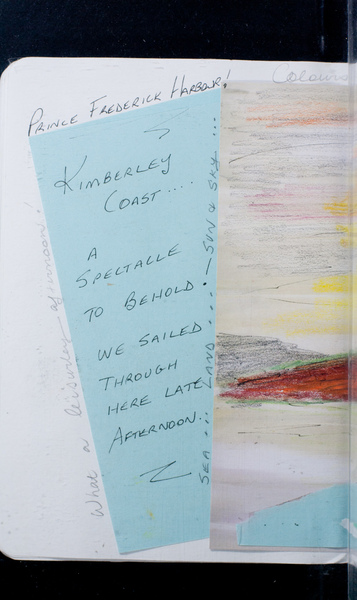 Prince Frederick Harbour!
Colours
Kimberley
Coast....
A
Spectalle
to Behold.
We Sailed
Through
Here Late
Afternoon.
Sea... Land... — Sun & Sky...
What a leisurley afternoon!